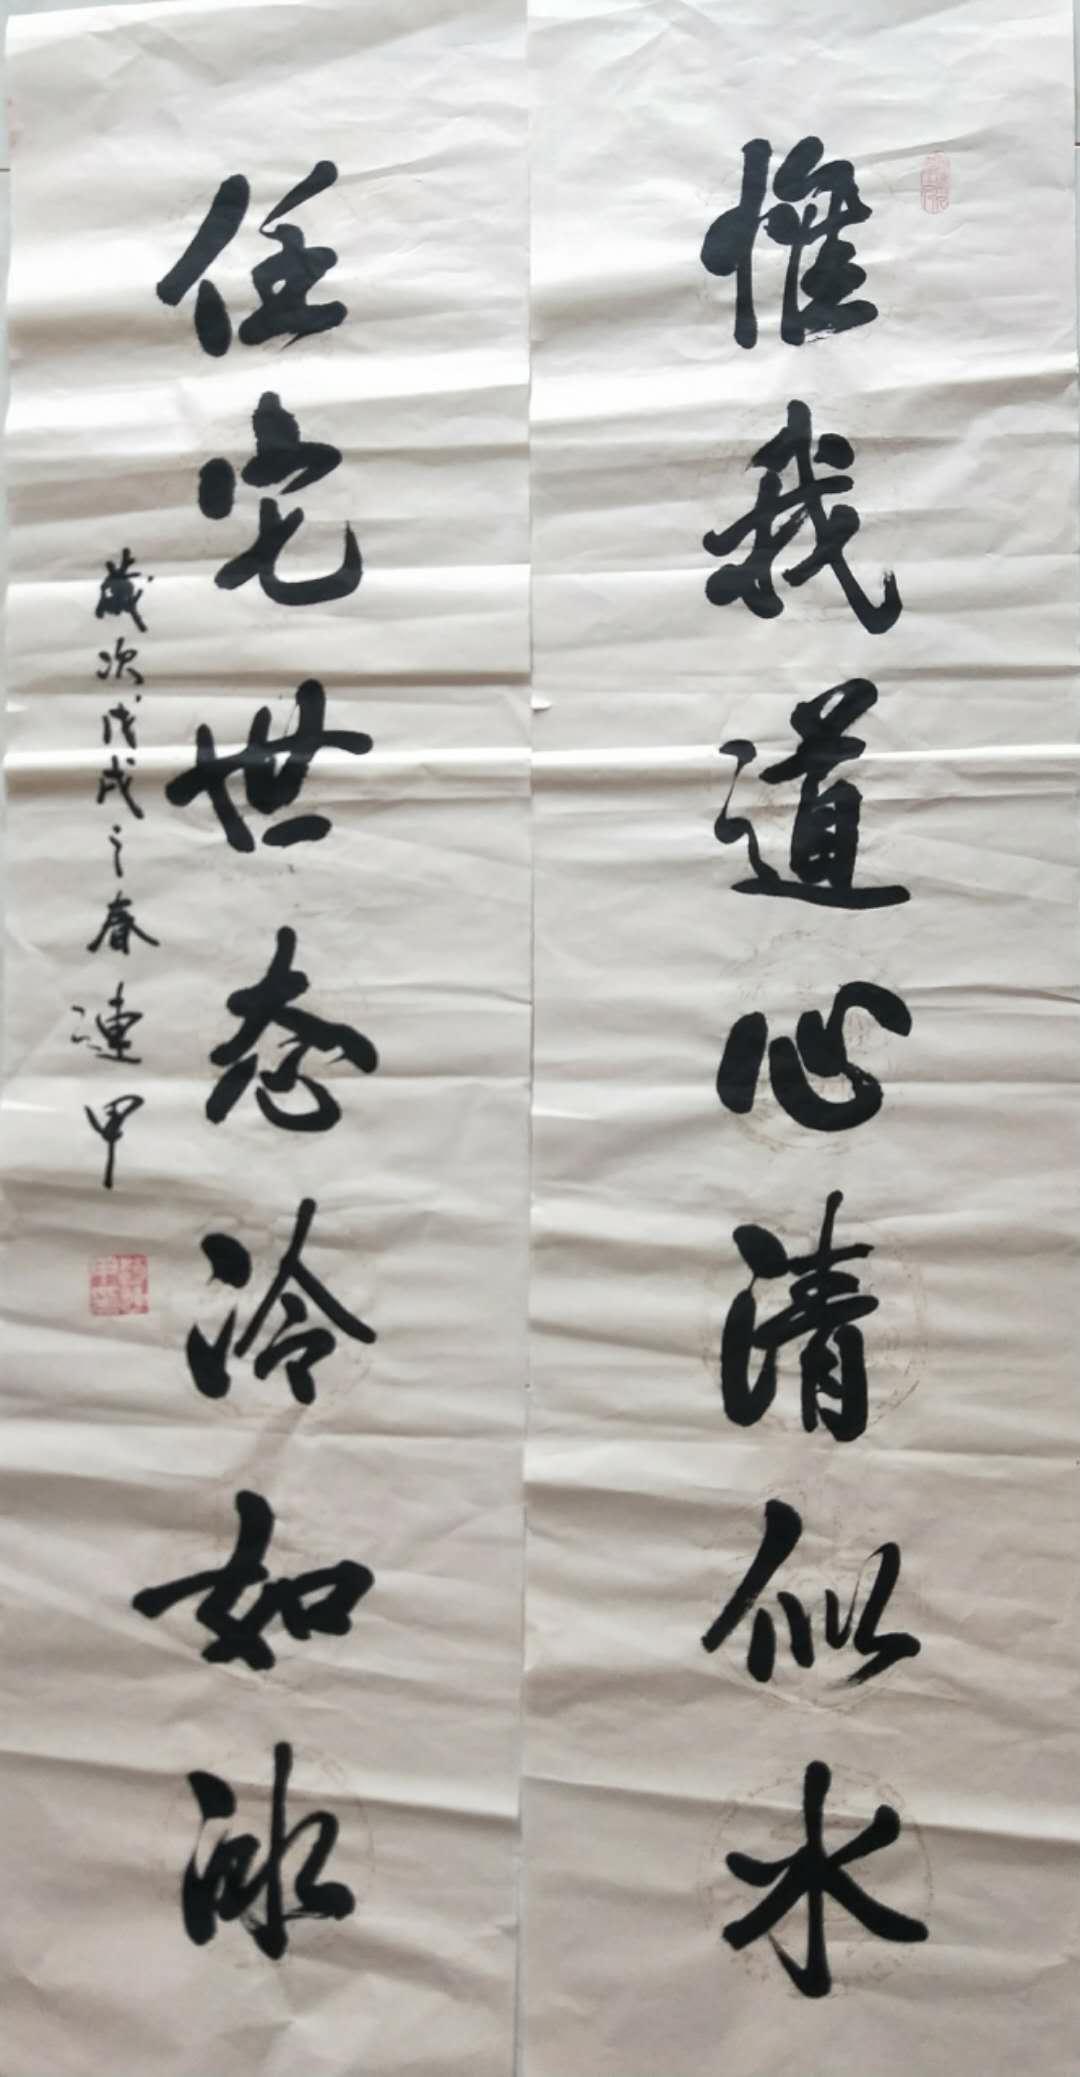 惟我道心清似水
任它世态冷如冰
歲次戊戌之春 連甲